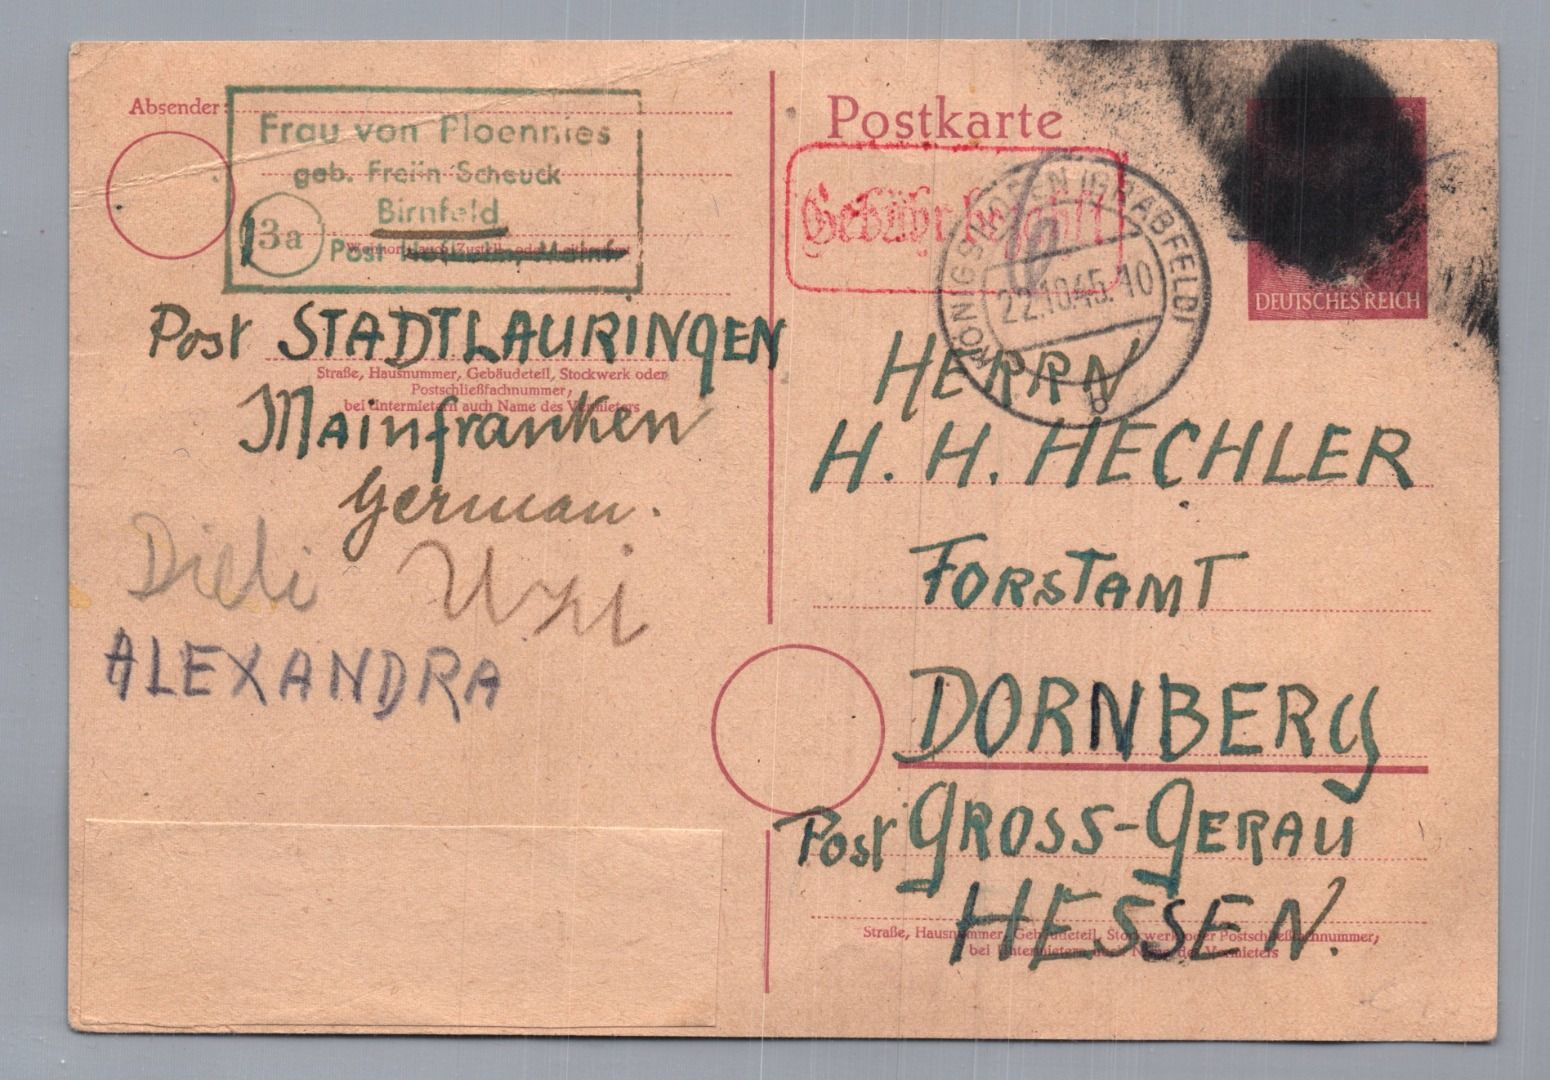 Absender:
Frau von Ploennies
geb. Freiin Scheuck
Birnfeld
13a
Post
Post STADTLAURINGEN
Straße, Hausnummer, Gebäudeteil, Stockwerk oder
Postschließfachnummer,
bei Untermietern auch Name des Vermieters
Mainfranken
German.
Uzi
ALEXANDRA
Postkarte
Gebühr bezahlt
KÖNIGSHOFEN (GRABFELD)
22.10.45.10
DEUTSCHES REICH
HERRN
H. H. HECHLER
FORSTAMT
DORNBERG
Post GROSS-GERAU
HESSEN.
Straße, Hausnummer, Gebäudeteil, Stockwerk oder Postschließfachnummer,
bei Untermietern auch Name des Vermieters